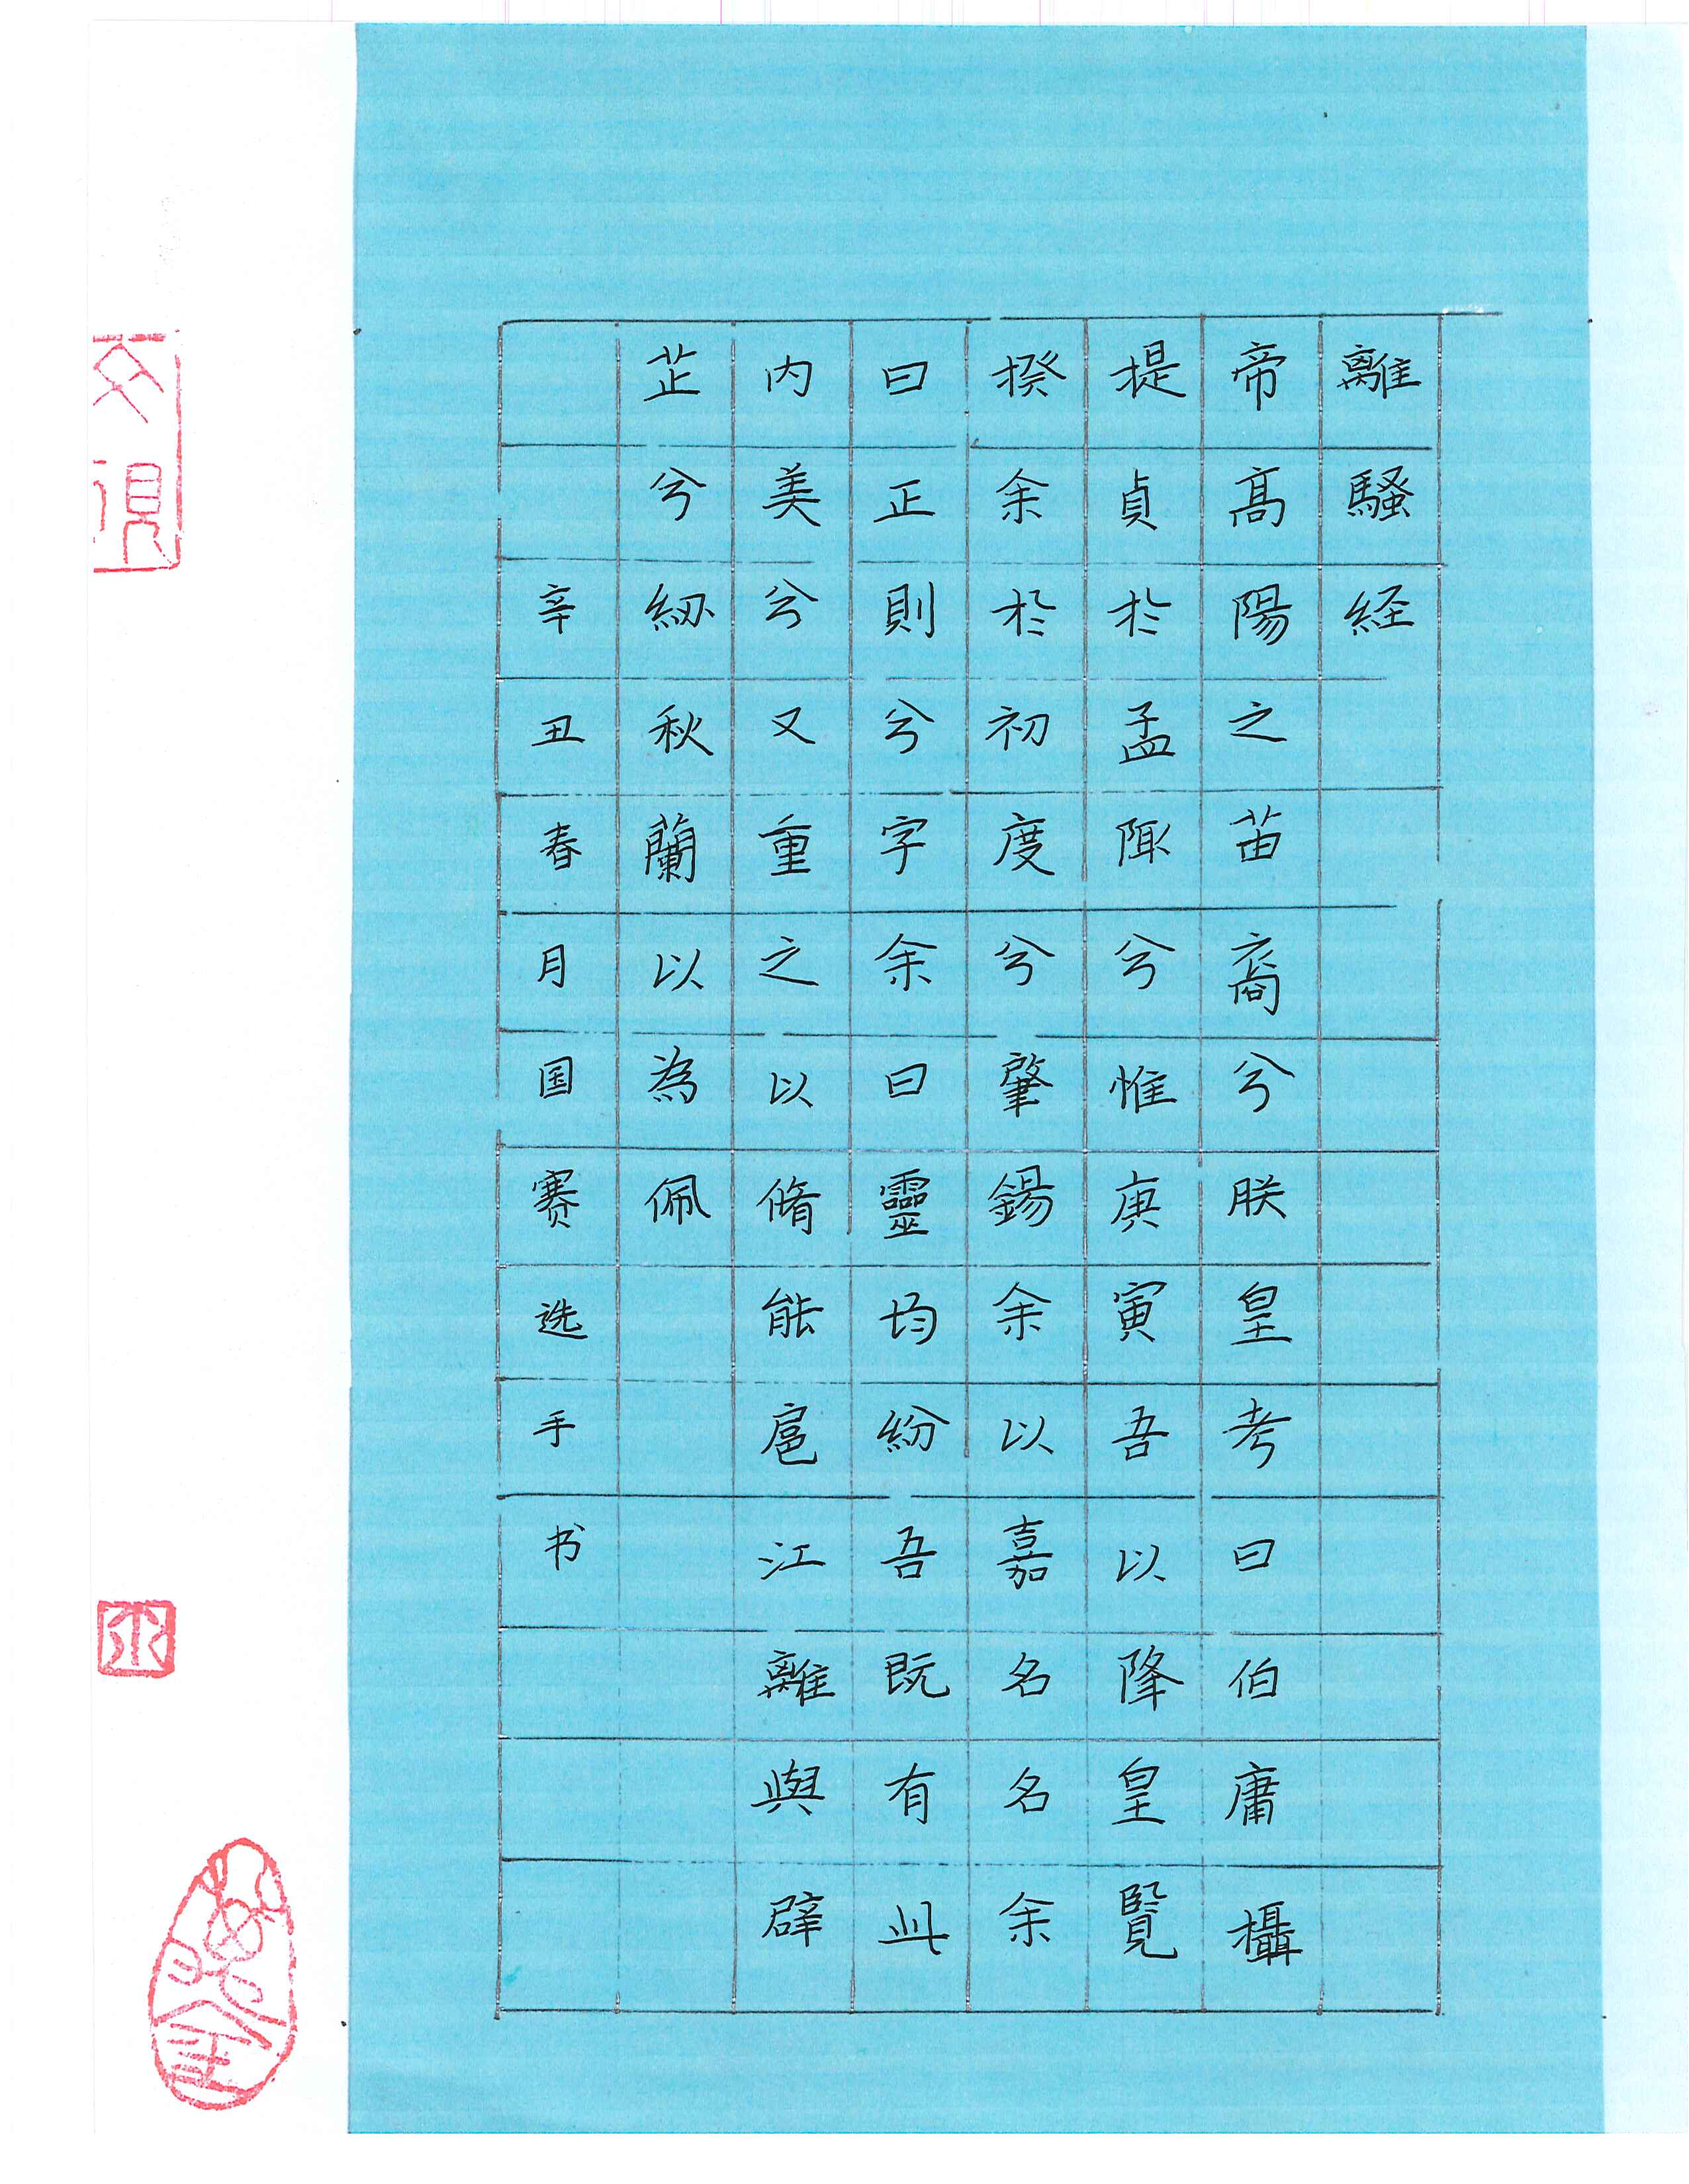 離騷経
帝高陽之苗裔兮朕皇考曰伯庸攝
提貞於孟陬兮惟庚寅吾以降皇覽
揆余於初度兮肇錫余以嘉名名余
曰正則兮字余曰靈均紛吾既有此
内美兮又重之以脩能扈江離與辟
芷兮紉秋蘭以為佩
辛丑春月国赛选手书